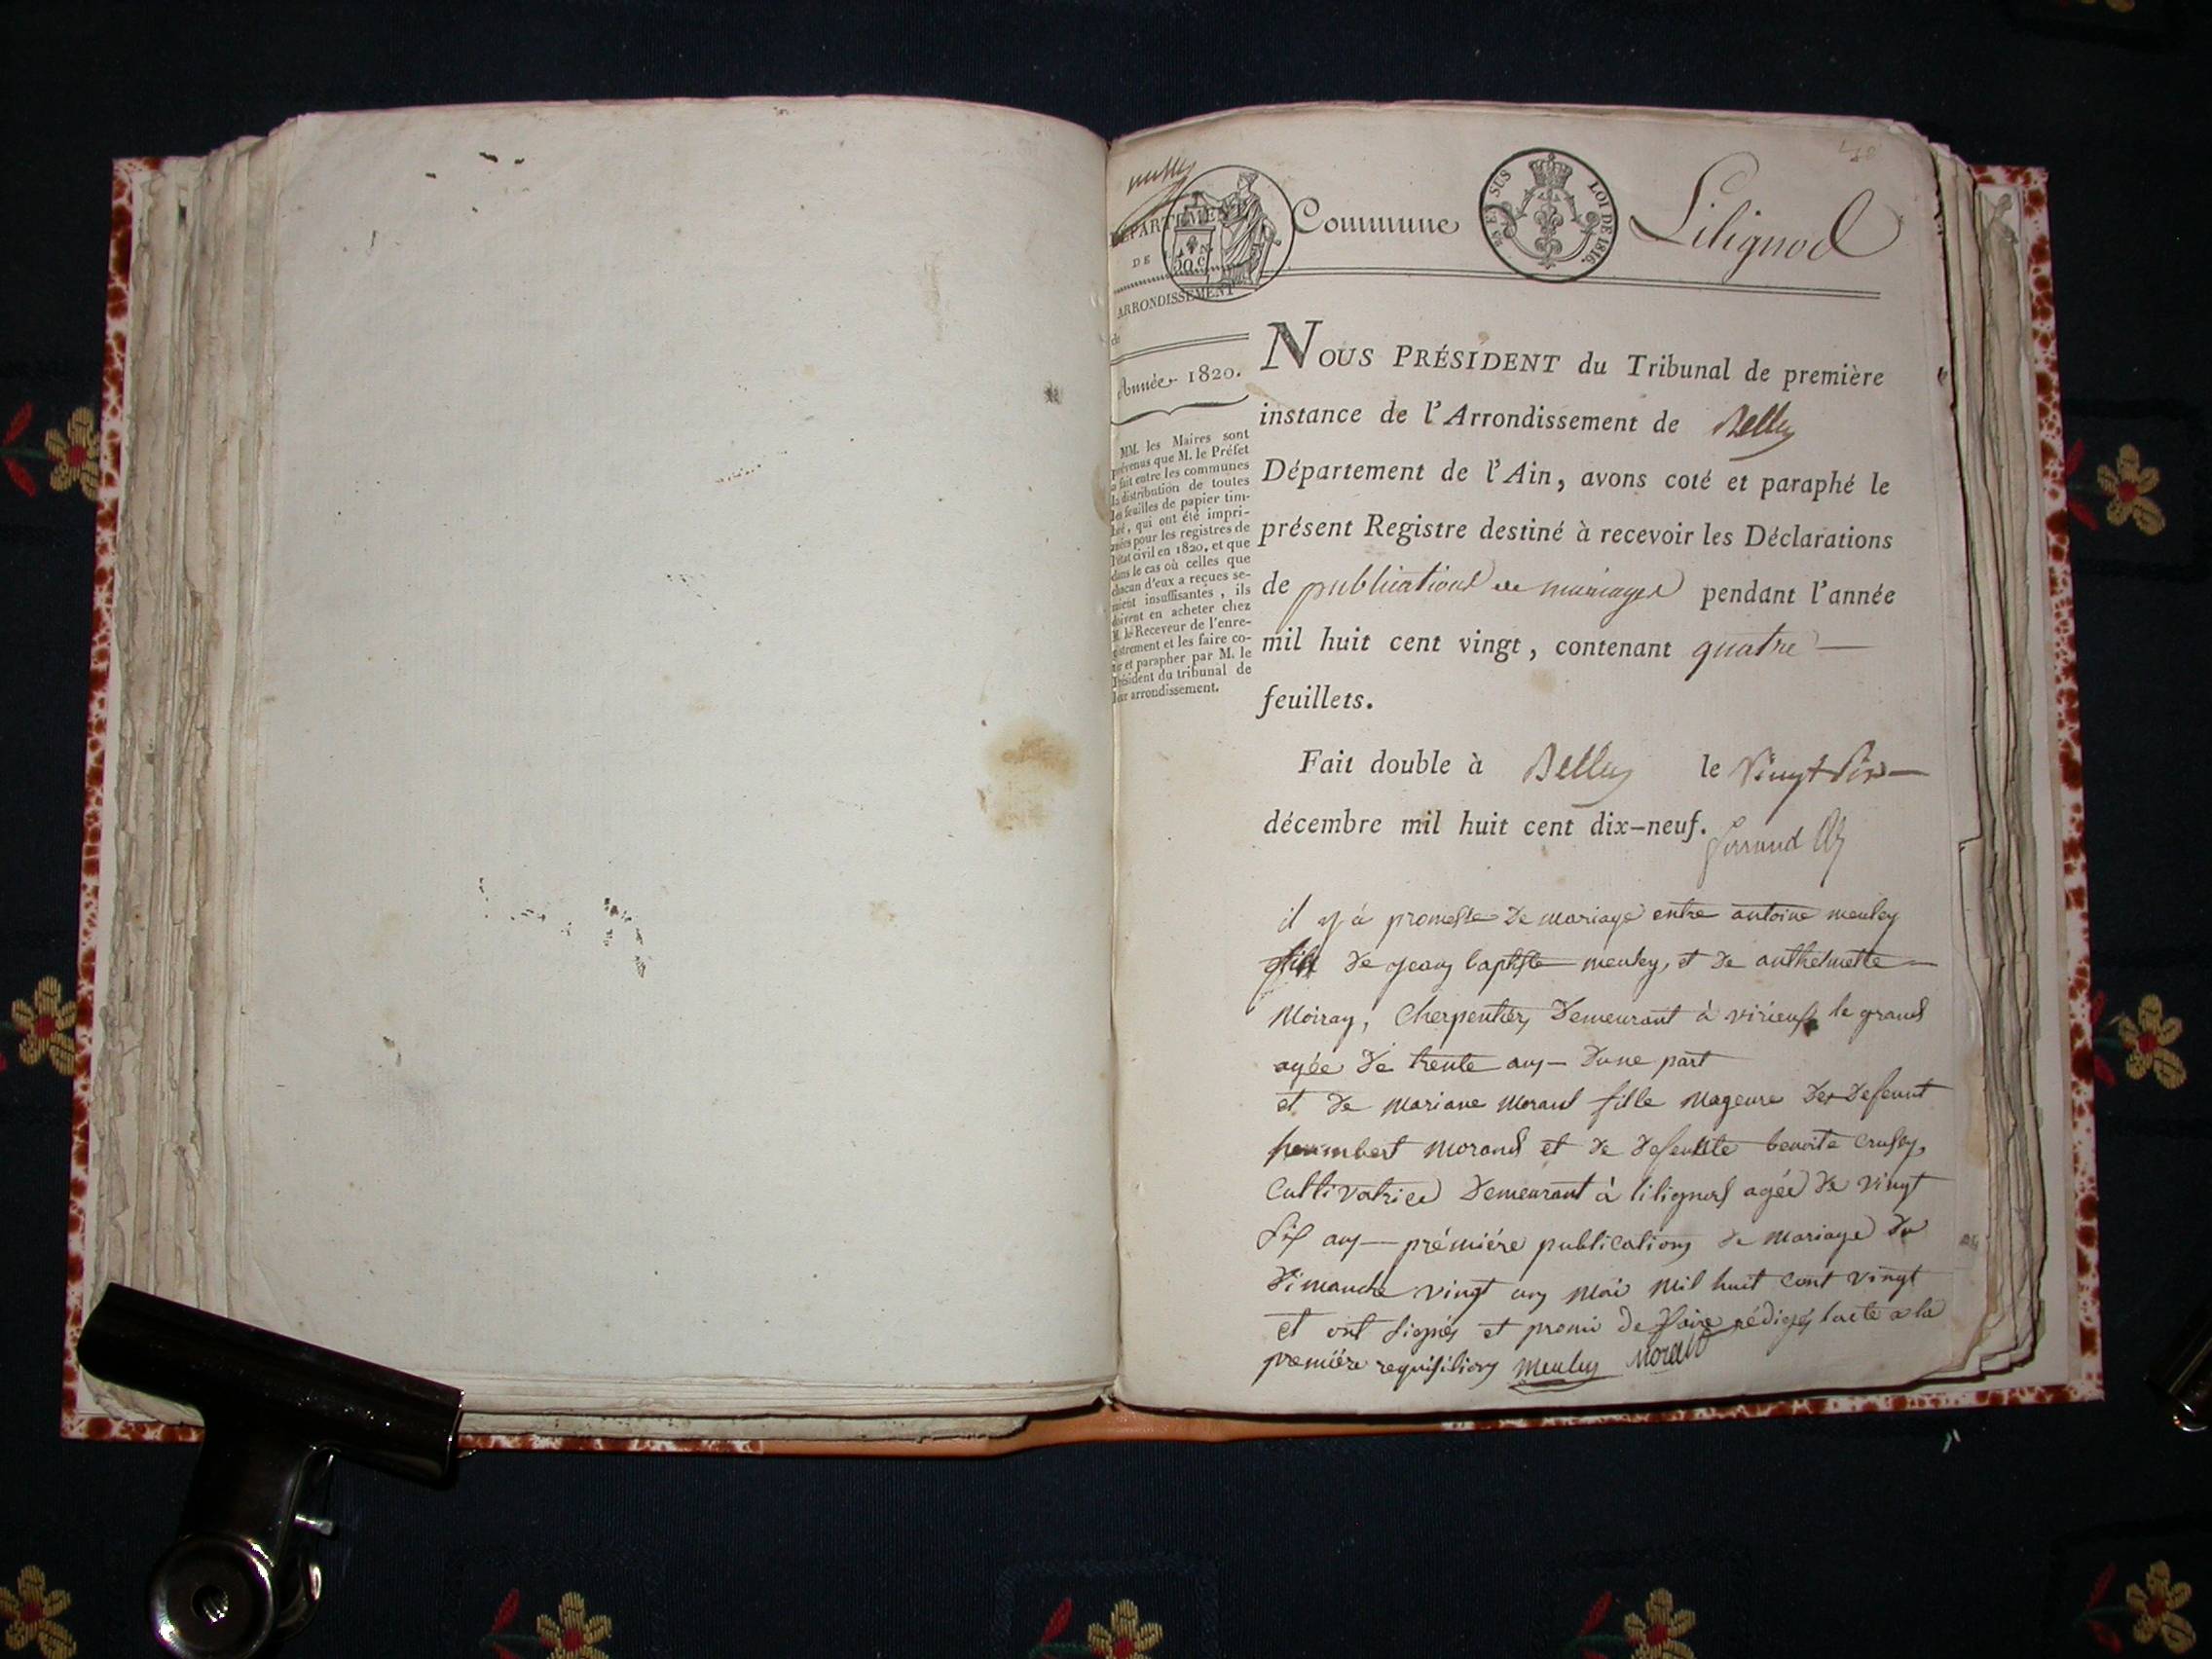 DÉPARTEMENT
DE
20 c
ARRONDISSEMENT
de
Année 1820.
MM. les Maires sont
prévenus que M. le Préfet
a fait entre les communes
la distribution de toutes
les feuilles de papier tim-
bré, qui ont été impri-
mées pour les registres de
l'état civil en 1820, et que
dans le cas où celles que
chacun d'eux a reçues se-
roient insuffisantes, ils
doivent en acheter chez
M. le Receveur de l'enre-
gistrement et les faire co-
ter et parapher par M. le
Président du tribunal de
leur arrondissement.
Commune Lilignod
EN SUS LOI DE 1816.
NOUS PRÉSIDENT du Tribunal de première
instance de l'Arrondissement de Belley
Département de l'Ain, avons coté et paraphé le
présent Registre destiné à recevoir les Déclarations
de publications de mariages pendant l'année
mil huit cent vingt, contenant quatre
feuillets.
Fait double à Belley le Vingt Six
décembre mil huit cent dix-neuf.
il y á promesse De mariage entre antoine meuley
fils De jean baptiste meuley, et De anthelmette
Moiray, Cherpentier, Demeurant à virieux le grand
agée De trente ans Dune part
et De mariane morand fille Mageure De Defeunt
heumbert morand et De Defeunte benoite
Cultivatrice Demeurant à lilignod agée De vingt
Six ans prémiére publication De Mariage Du
Dimanche vingt un Mai Mil huit Cent vingt
et ont Signés et promi De faire rédigés lacte a la
premiére requisition Meuley Morand